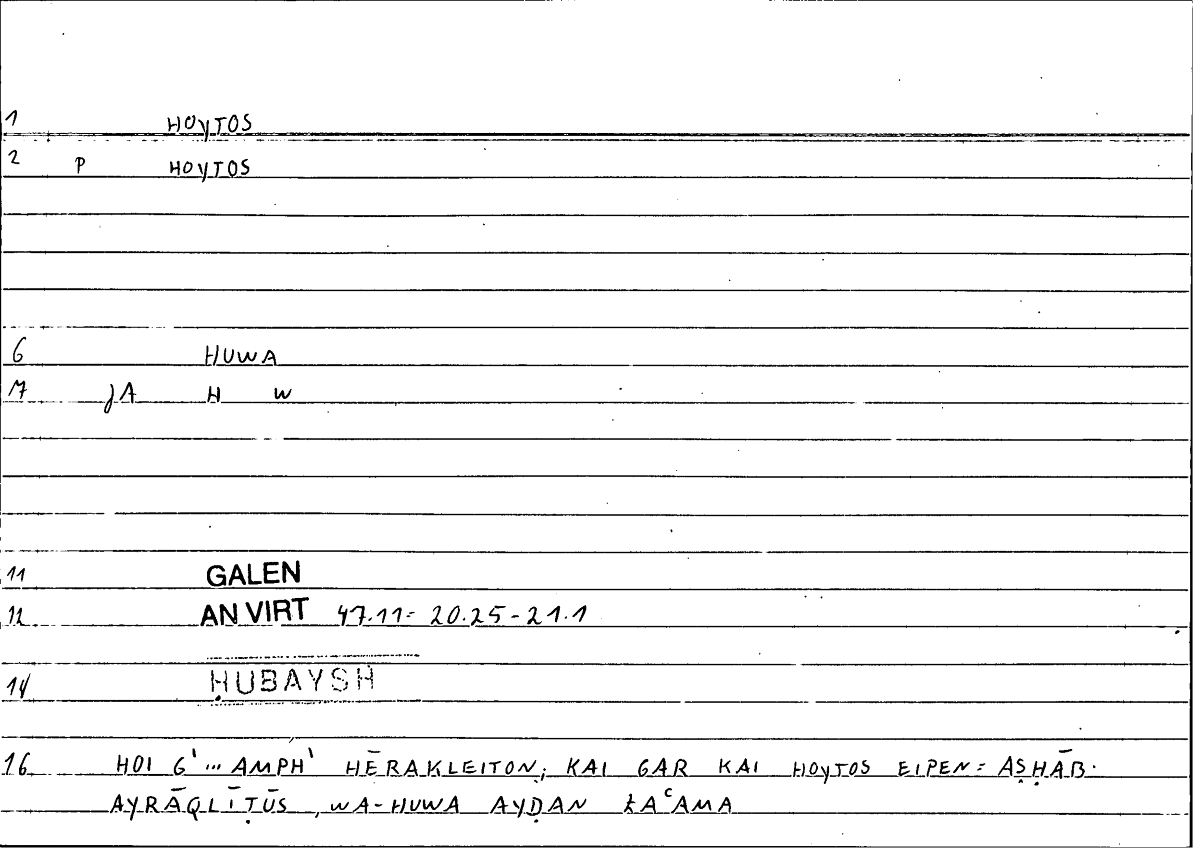 1 HOYTOS
2 P HOYTOS
6 HUWA
7 JA H W
11 GALEN
12 AN VIRT 47.11 = 20.25 - 21.1
14 ḤUBAYSH
16 HOI G' ... AMPH' HĒRAKLEITON; KAI GAR KAI HOYTOS EIPEN = AṢḤĀB·
AYRĀQLĪṬŪS, WA-HUWA AYḌAN ZAʿAMA